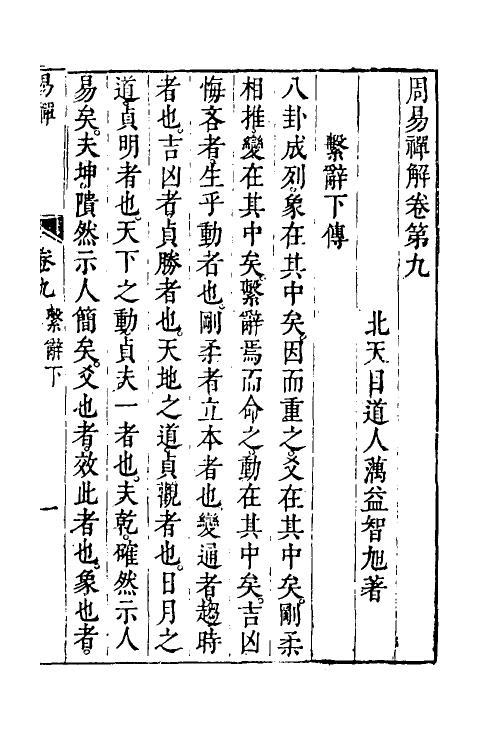 周易禪解卷第九
北天目道人蕅益智旭著
繫辭下傳
八卦成列。象在其中矣。因而重之。爻在其中矣。剛柔
相推。變在其中矣。繫辭焉而命之。動在其中矣。吉凶
悔吝者。生乎動者也。剛柔者。立本者也。變通者。趨時
者也。吉凶者。貞勝者也。天地之道。貞觀者也。日月之
道。貞明者也。天下之動。貞夫一者也。夫乾。確然示人
易矣。夫坤。隤然示人簡矣。爻也者。效此者也。象也者。
易禪
卷九 繫辭下
一